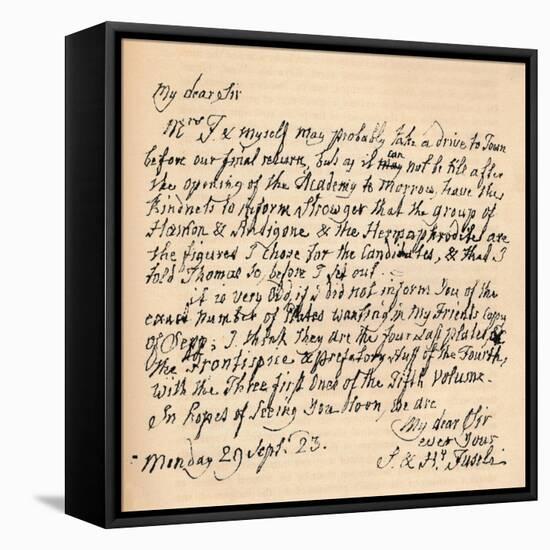 My dear Sir
Mrs F & myself may probably take a drive to Town
before our final return, but as it can may not be till after
the opening of the Academy to morrow, have the
kindness to inform Strowger that the group of
Haemon & Antigone & the Hermaphrodite are
the figures I chose for the Candidates, & that I
told Thomas so, before I set out.
it is very Odd, if I did not inform You of the
exact number of Plates wanting in my Friends Copy
of Sepp: I think They are the four Last plates,
the Frontispice & prefatory stuff of the Fourth,
with the Three first Ones of the Fifth Volume.
In hopes of Seeing You Soon, we are
My dear Sir
ever Yours
Monday 29 Sept. 23.
S. & Hy Fuseli